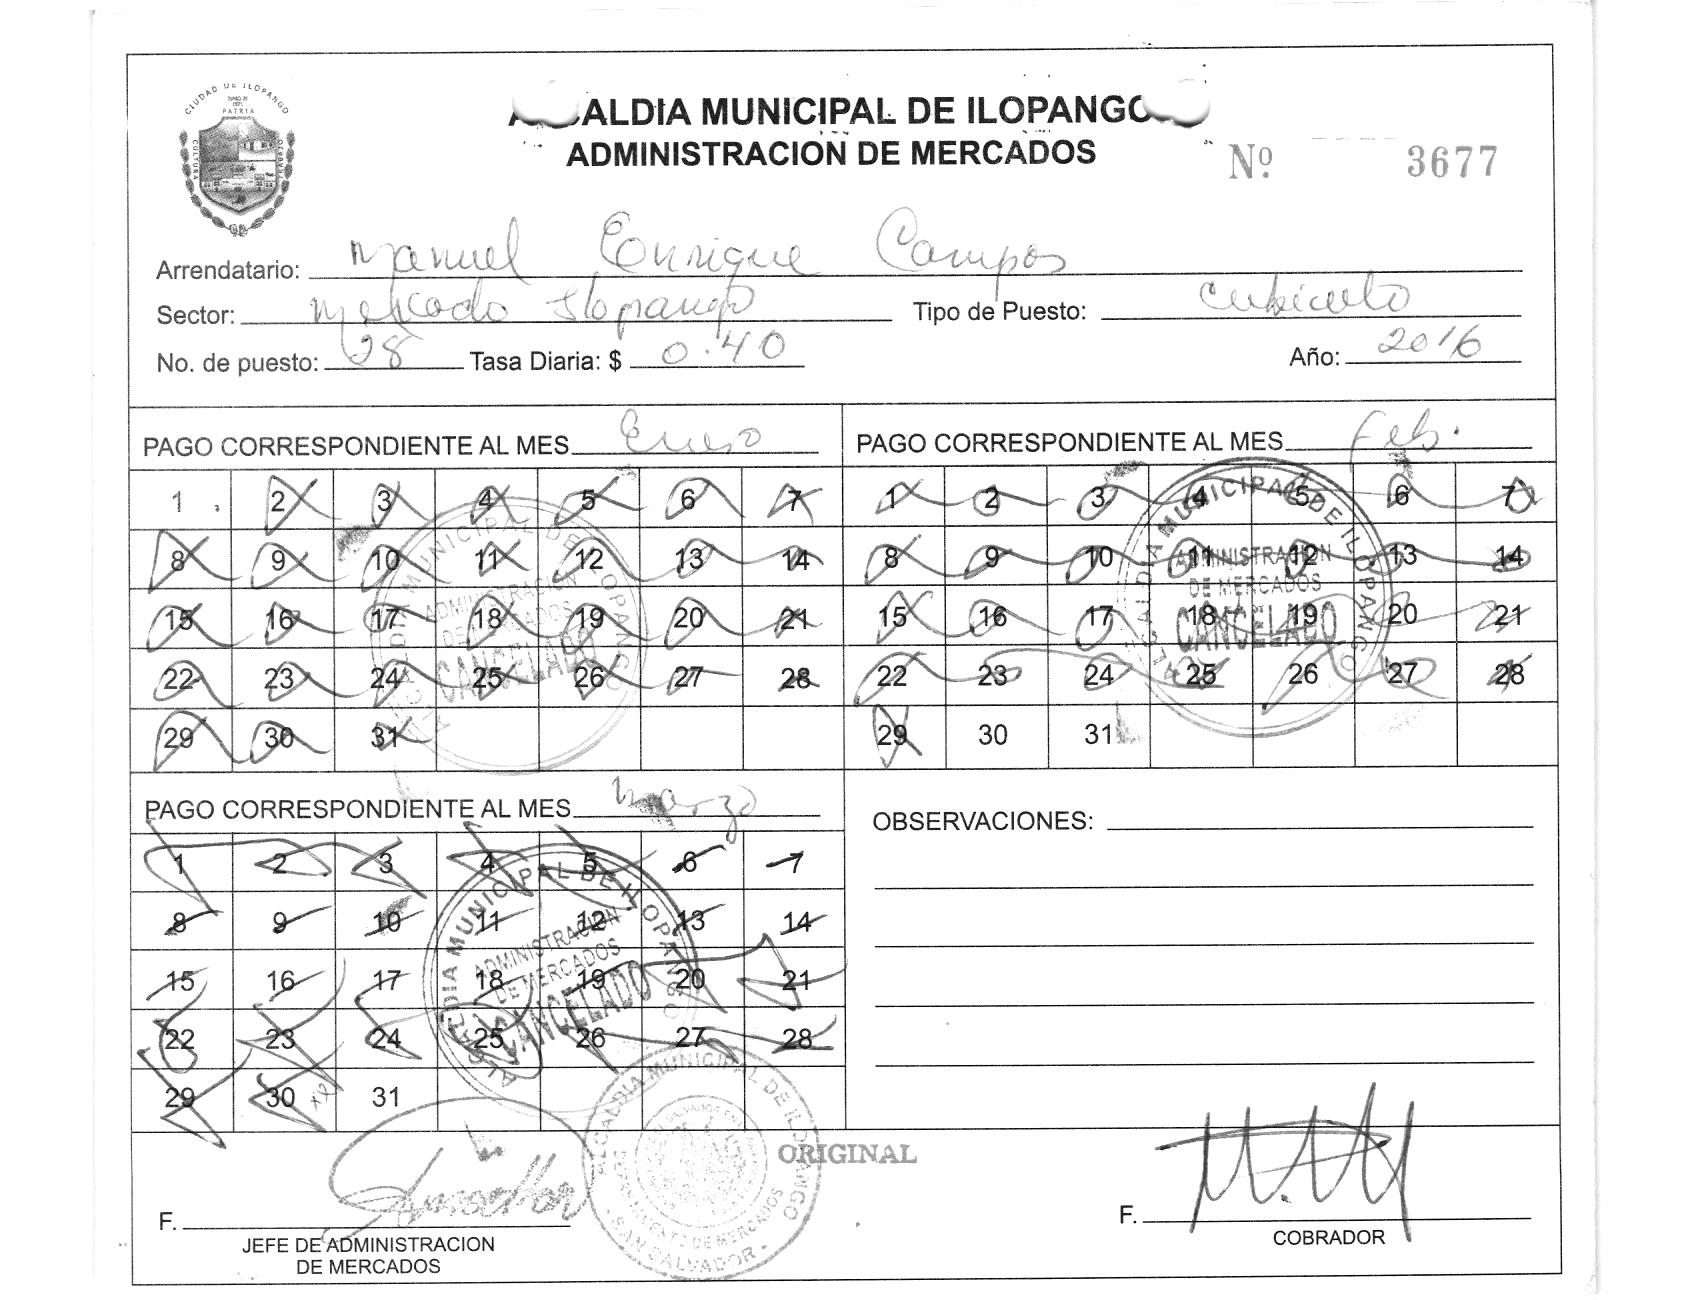 CIUDAD DE ILOPANGO
PATRIA
CULTURA
ALCALDIA MUNICIPAL DE ILOPANGO
ADMINISTRACION DE MERCADOS
Nº. 3677
Arrendatario: Manuel Enrique Campos
Sector: Mercado Ilopango Tipo de Puesto: cubiculo
No. de puesto: 28 Tasa Diaria: $ 0.40 Año: 2016
PAGO CORRESPONDIENTE AL MES Enero
1 2 3 4 5 6 7
8 9 10 11 12 13 14
15 16 17 18 19 20 21
22 23 24 25 26 27 28
29 30 31
ALCALDIA MUNICIPAL DE ILOPANGO
ADMINISTRACION
DE MERCADOS
CANCELADO
PAGO CORRESPONDIENTE AL MES Feb.
1 2 3 4 5 6 7
8 9 10 11 12 13 14
15 16 17 18 19 20 21
22 23 24 25 26 27 28
29 30 31
ALCALDIA MUNICIPAL DE ILOPANGO
ADMINISTRACION
DE MERCADOS
CANCELADO
PAGO CORRESPONDIENTE AL MES Marzo
1 2 3 4 5 6 7
8 9 10 11 12 13 14
15 16 17 18 19 20 21
22 23 24 25 26 27 28
29 30 31
ALCALDIA MUNICIPAL DE ILOPANGO
ADMINISTRACION
DE MERCADOS
CANCELADO
OBSERVACIONES:
ALCALDIA MUNICIPAL DE ILOPANGO
DE MERCADOS
SAN SALVADOR
ORIGINAL
F.
JEFE DE ADMINISTRACION
DE MERCADOS
F.
COBRADOR